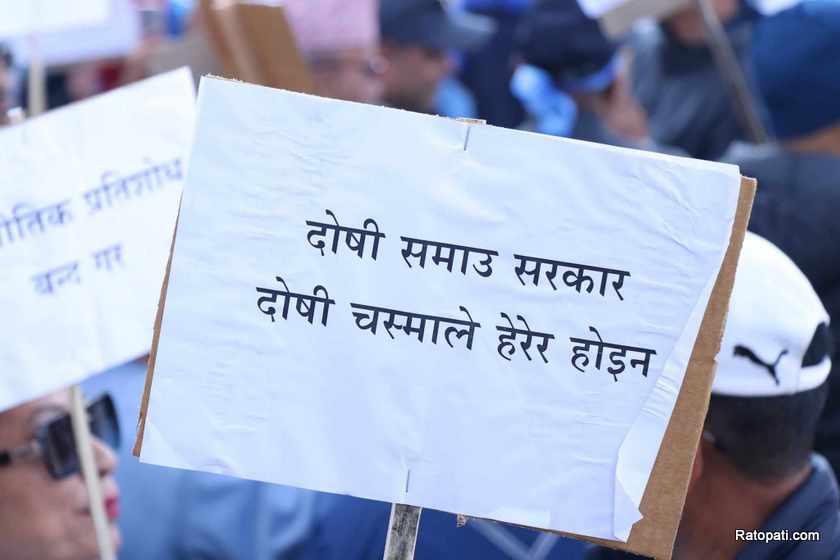 ीतिक प्रतिशोध
बन्द गर
दोषी समाउ सरकार
दोषी चस्माले हेरेर होइन
Ratopati.com